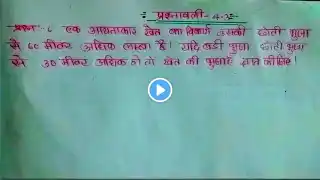 प्रश्नावली- 4.3
प्रश्न- 6 एक आयताकार खेत का विकर्ण उसकी छोटी भुजा
से 60 मीटर अधिक लम्बा है। यदि बड़ी भुजा छोटी भुजा
से 30 मीटर अधिक हो तो खेत की भुजाएँ ज्ञात कीजिए।